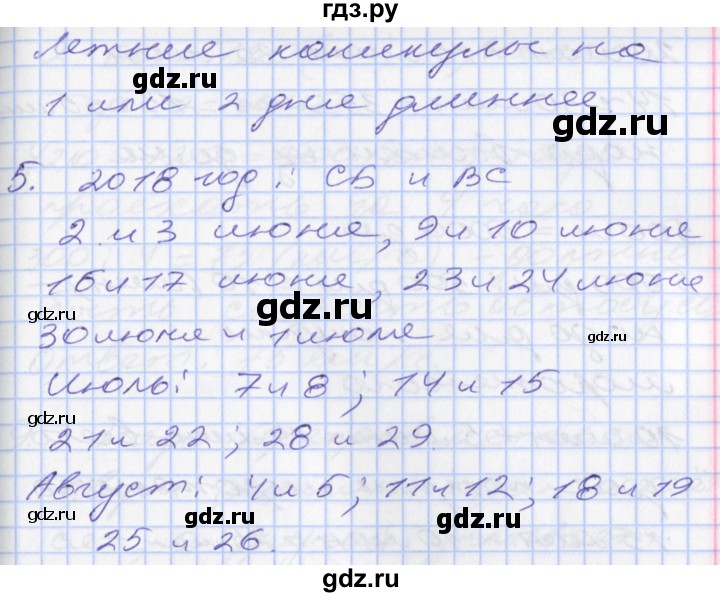 гдз.ру
Летние каникулы на
gdz.ru
1 или 2 дня длиннее.
gdz.ru
5. 2018 год: СБ и ВС
2 и 3 июня, 9 и 10 июня
16 и 17 июня, 23 и 24 июня
gdz.ru gdz.ru
30 июня и 1 июля
gdz.ru
Июль: 7 и 8; 14 и 15
gdz.ru
21 и 22; 28 и 29.
Август: 4 и 5; 11 и 12; 18 и 19
gdz.ru gdz.ru gdz.ru
25 и 26.
gdz.ru